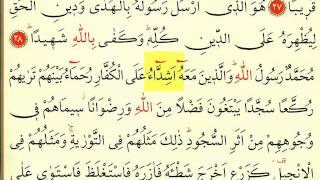 قَر۪يبًا ﴿٢٧﴾ هُوَ الَّذ۪ٓي اَرْسَلَ رَسُولَهُ بِالْهُدٰى وَد۪ينِ الْحَقِّ
لِيُظْهِرَهُ عَلَى الدّ۪ينِ كُلِّه۪ۜ وَكَفٰى بِاللّٰهِ شَه۪يدًاۜ ﴿٢٨﴾
مُحَمَّدٌ رَسُولُ اللّٰهِۜ وَالَّذ۪ينَ مَعَهُٓ اَشِدَّٓاءُ عَلَى الْكُفَّارِ رُحَمَٓاءُ بَيْنَهُمْ تَرٰيهُمْ
رُكَّعًا سُجَّدًا يَبْتَغُونَ فَضْلًا مِنَ اللّٰهِ وَرِضْوَانًاۘ س۪يمَاهُمْ ف۪ي
وُجُوهِهِمْ مِنْ اَثَرِ السُّجُودِۜ ذٰلِكَ مَثَلُهُمْ فِي التَّوْرٰيةِۚ وَمَثَلُهُمْ فِي
الْاِنْج۪يلِ۠ كَزَرْعٍ اَخْرَجَ شَطْـَٔهُ فَاٰزَرَهُ فَاسْتَغْلَظَ فَاسْتَوٰى عَلٰى